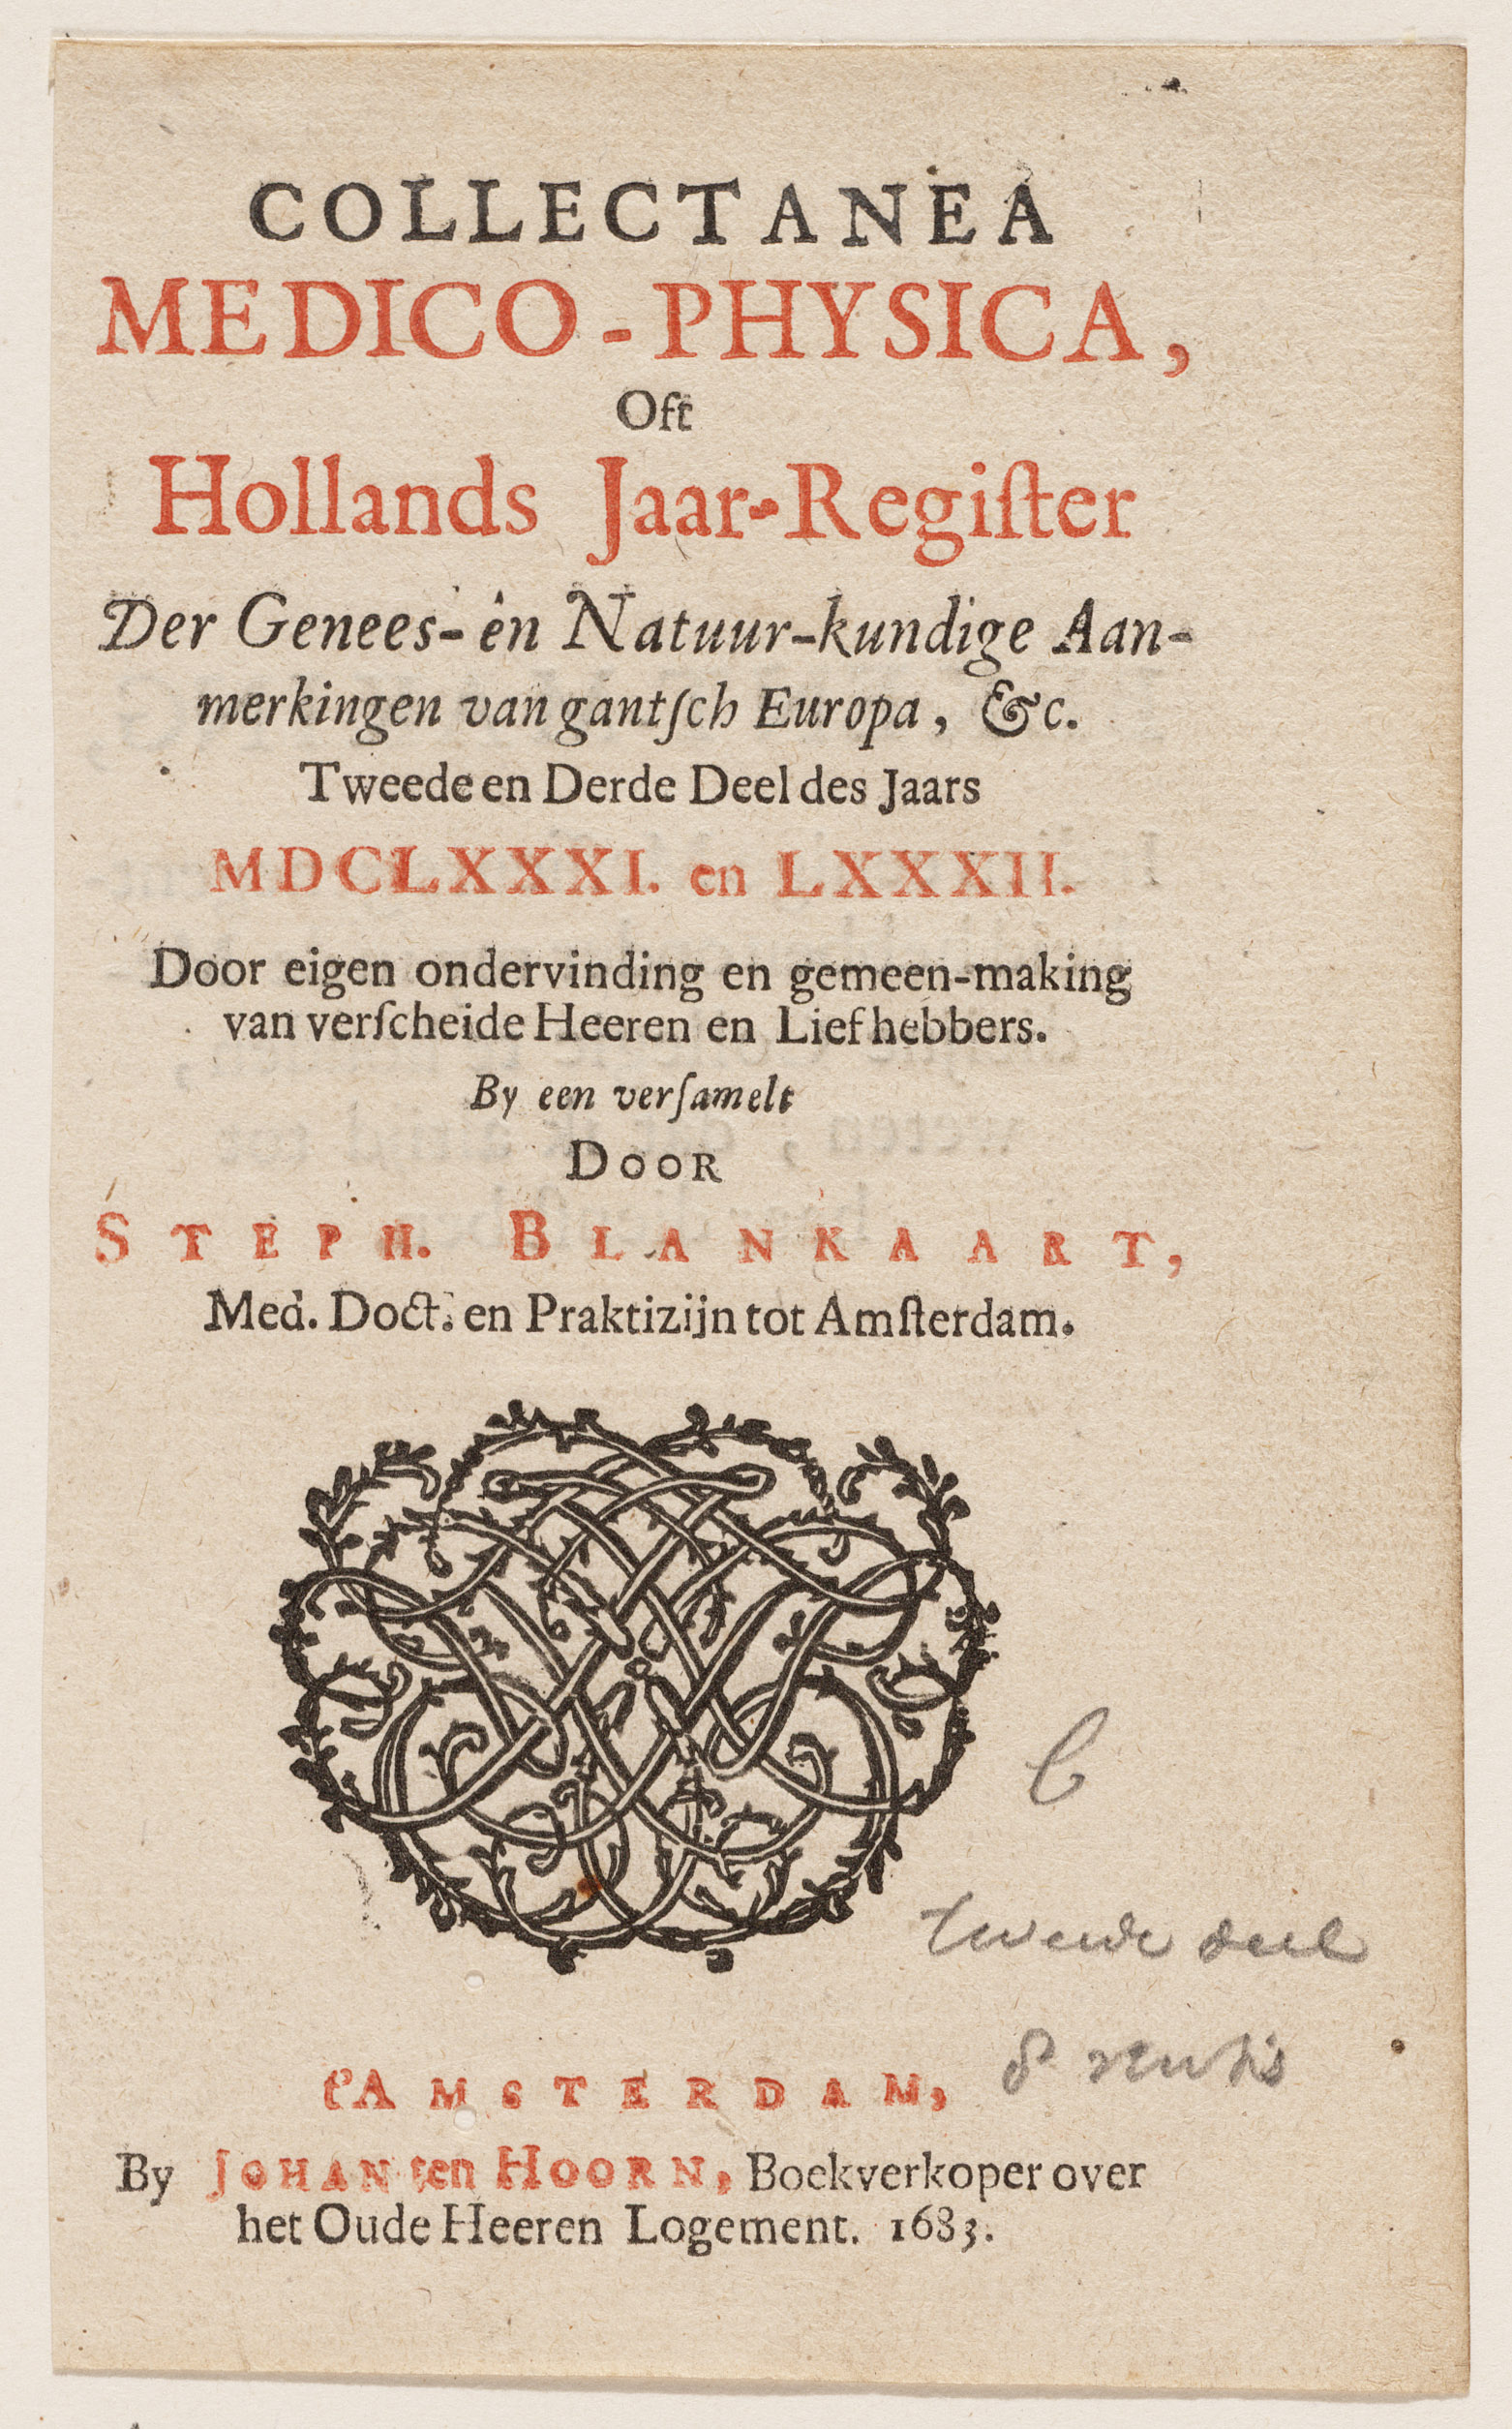 COLLECTANEA
MEDICO-PHYSICA,
Oft
Hollands Jaar-Regiſter
Der Genees- en Natuur-kundige Aan-
merkingen van gantſch Europa, &c.
Tweede en Derde Deel des Jaars
MDCLXXXI. en LXXXII.
Door eigen ondervinding en gemeen-making
van verſcheide Heeren en Liefhebbers.
By een verſamelt
DOOR
STEPH. BLANKAART,
Med. Doct. en Praktizijn tot Amſterdam.
tweede deel
t'AMSTERDAM,
By JOHAN ten HOORN, Boekverkoper over
het Oude Heeren Logement. 1683.